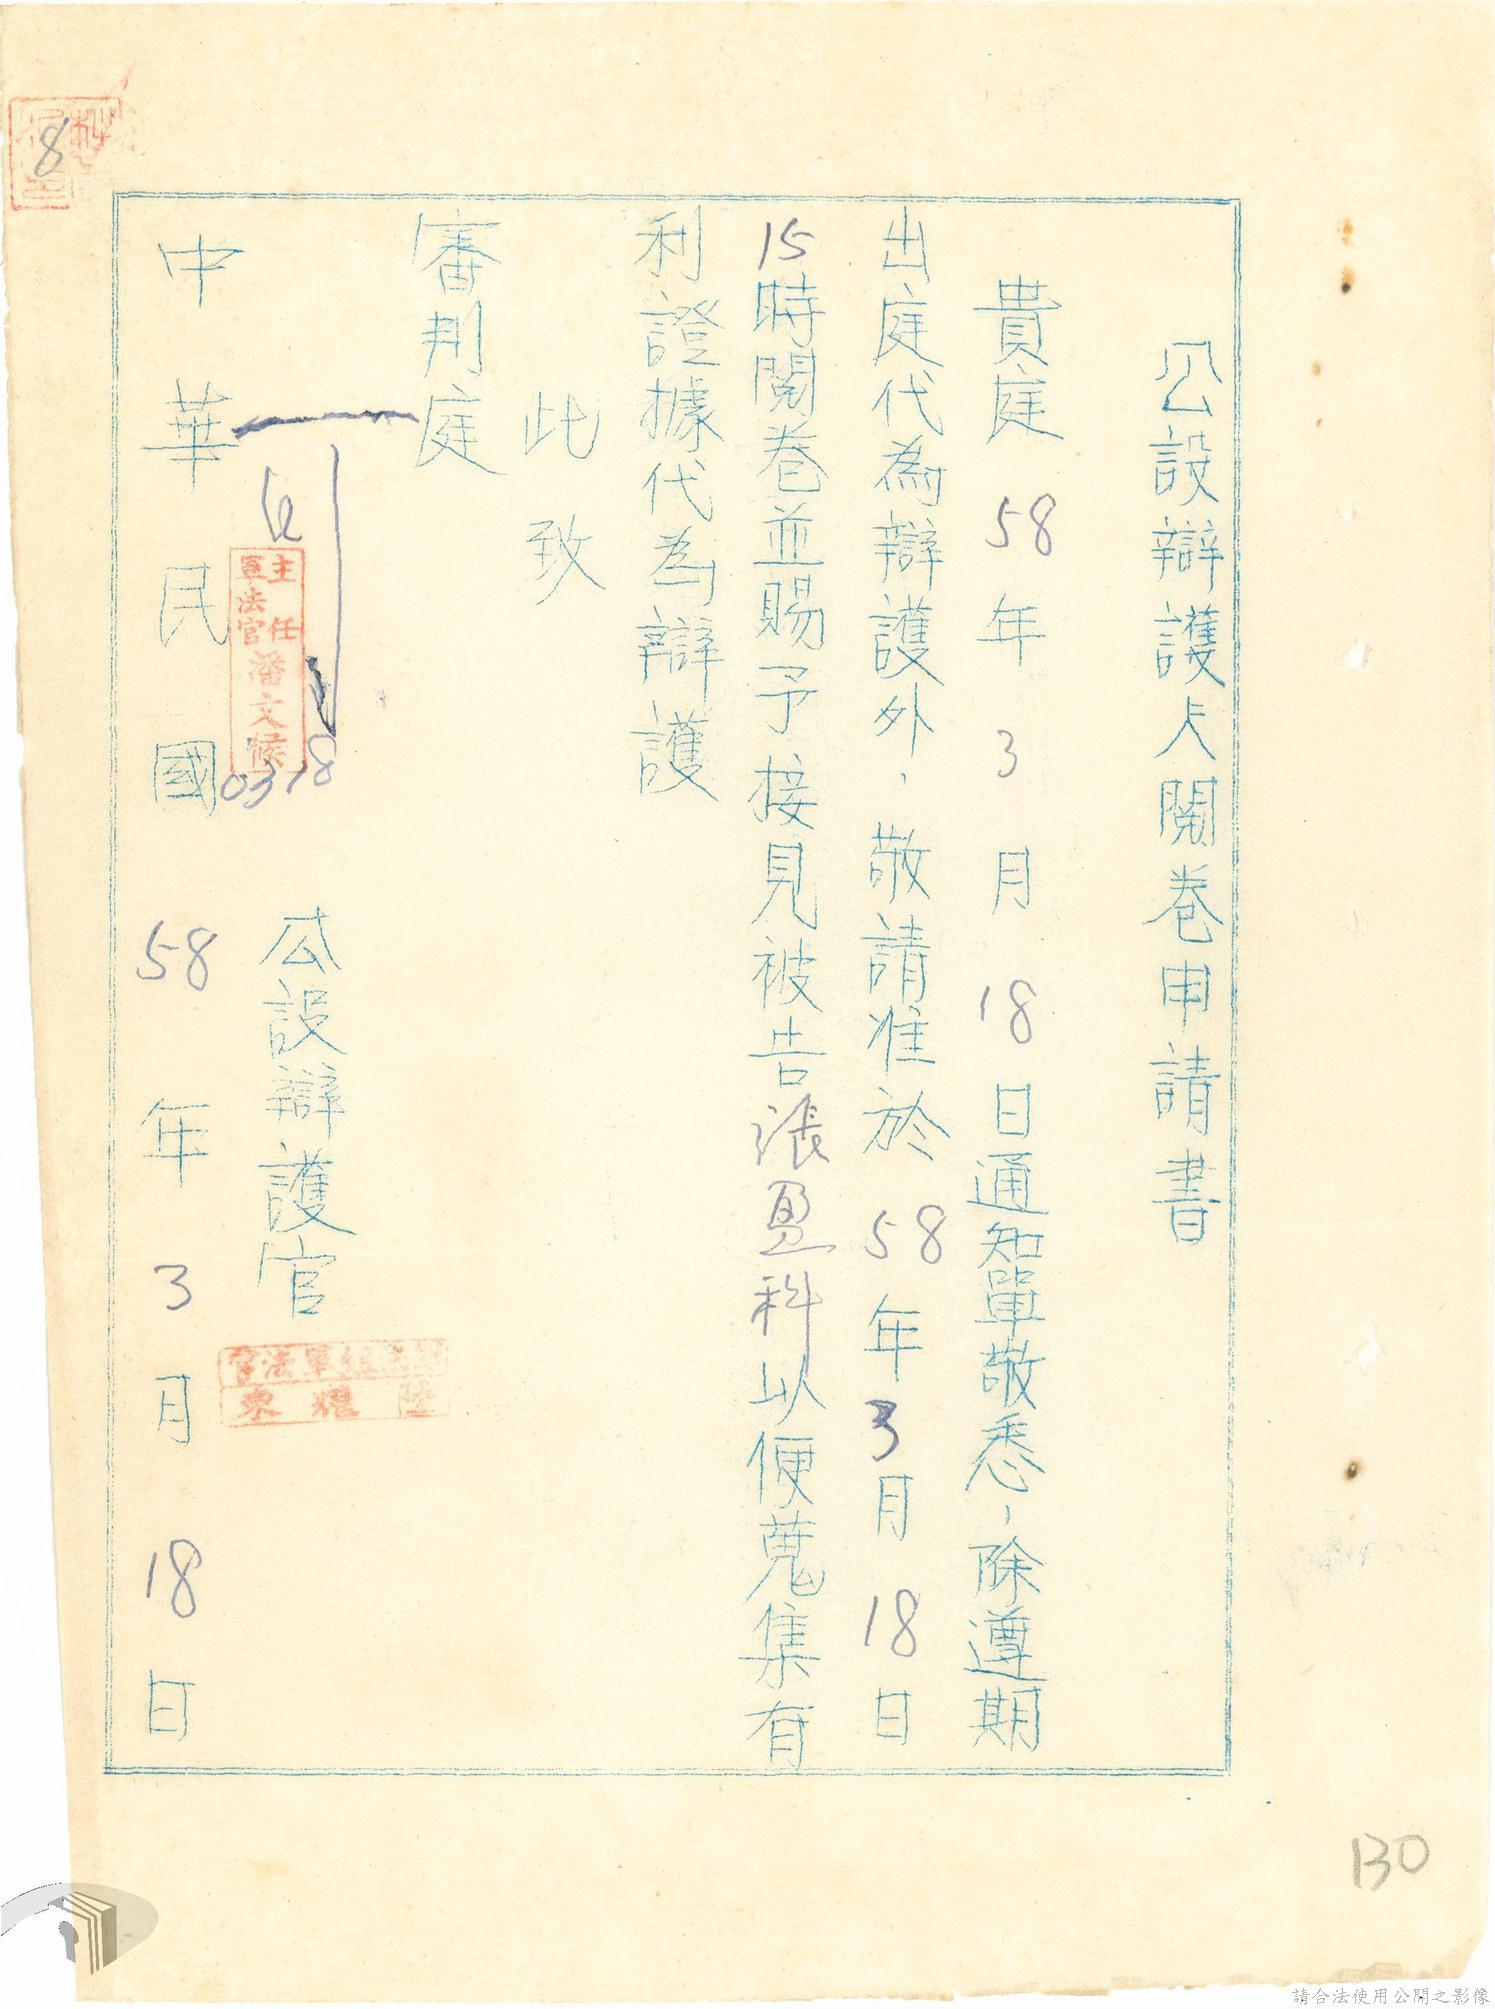 公設辯護人閱卷申請書
貴庭58年3月18日通知單敬悉，除遵期
出庭代為辯護外，敬請准於58年3月18日
15時閱卷並賜予接見被告張盈科以便蒐集有
利證據代為辯護
此致
審判庭
公設辯護官
軍法官
陸耀東
主任
軍法官
潘文候
0318
中華民國58年3月18日
8
130
請合法使用公開之影像